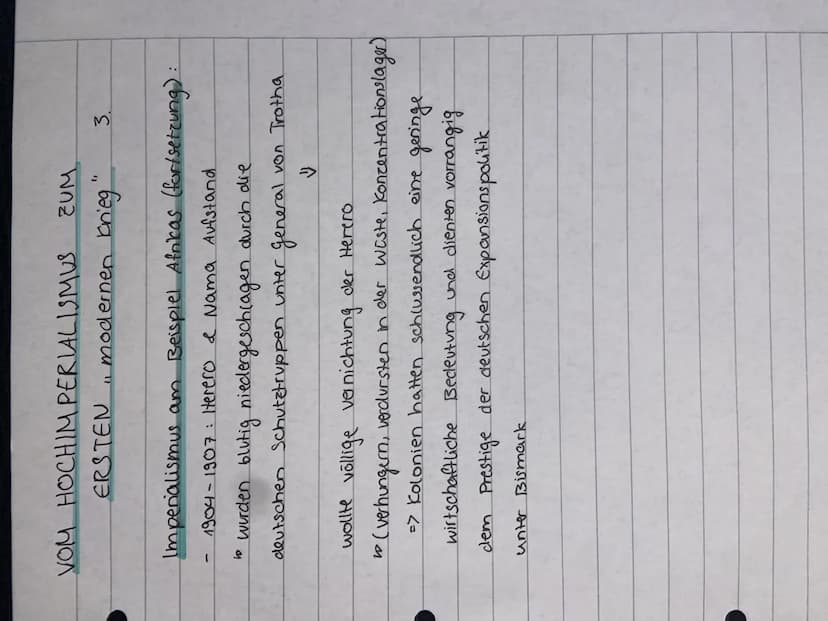 VOM HOCHIMPERIALISMUS ZUM
ERSTEN „modernen Krieg" 3.
Imperialismus am Beispiel Afrikas (Fortsetzung):
- 1904-1907: Herero & Nama Aufstand
↳ wurden blutig niedergeschlagen durch die
deutschen Schutztruppen unter General von Trotha
⇓
wollte völlige Vernichtung der Herero
↳ (verhungern, verdursten in der Wüste, Konzentrationslager)
=> Kolonien hatten schlussendlich eine geringe
wirtschaftliche Bedeutung und dienten vorrangig
dem Prestige der deutschen Expansionspolitik
unter Bismark